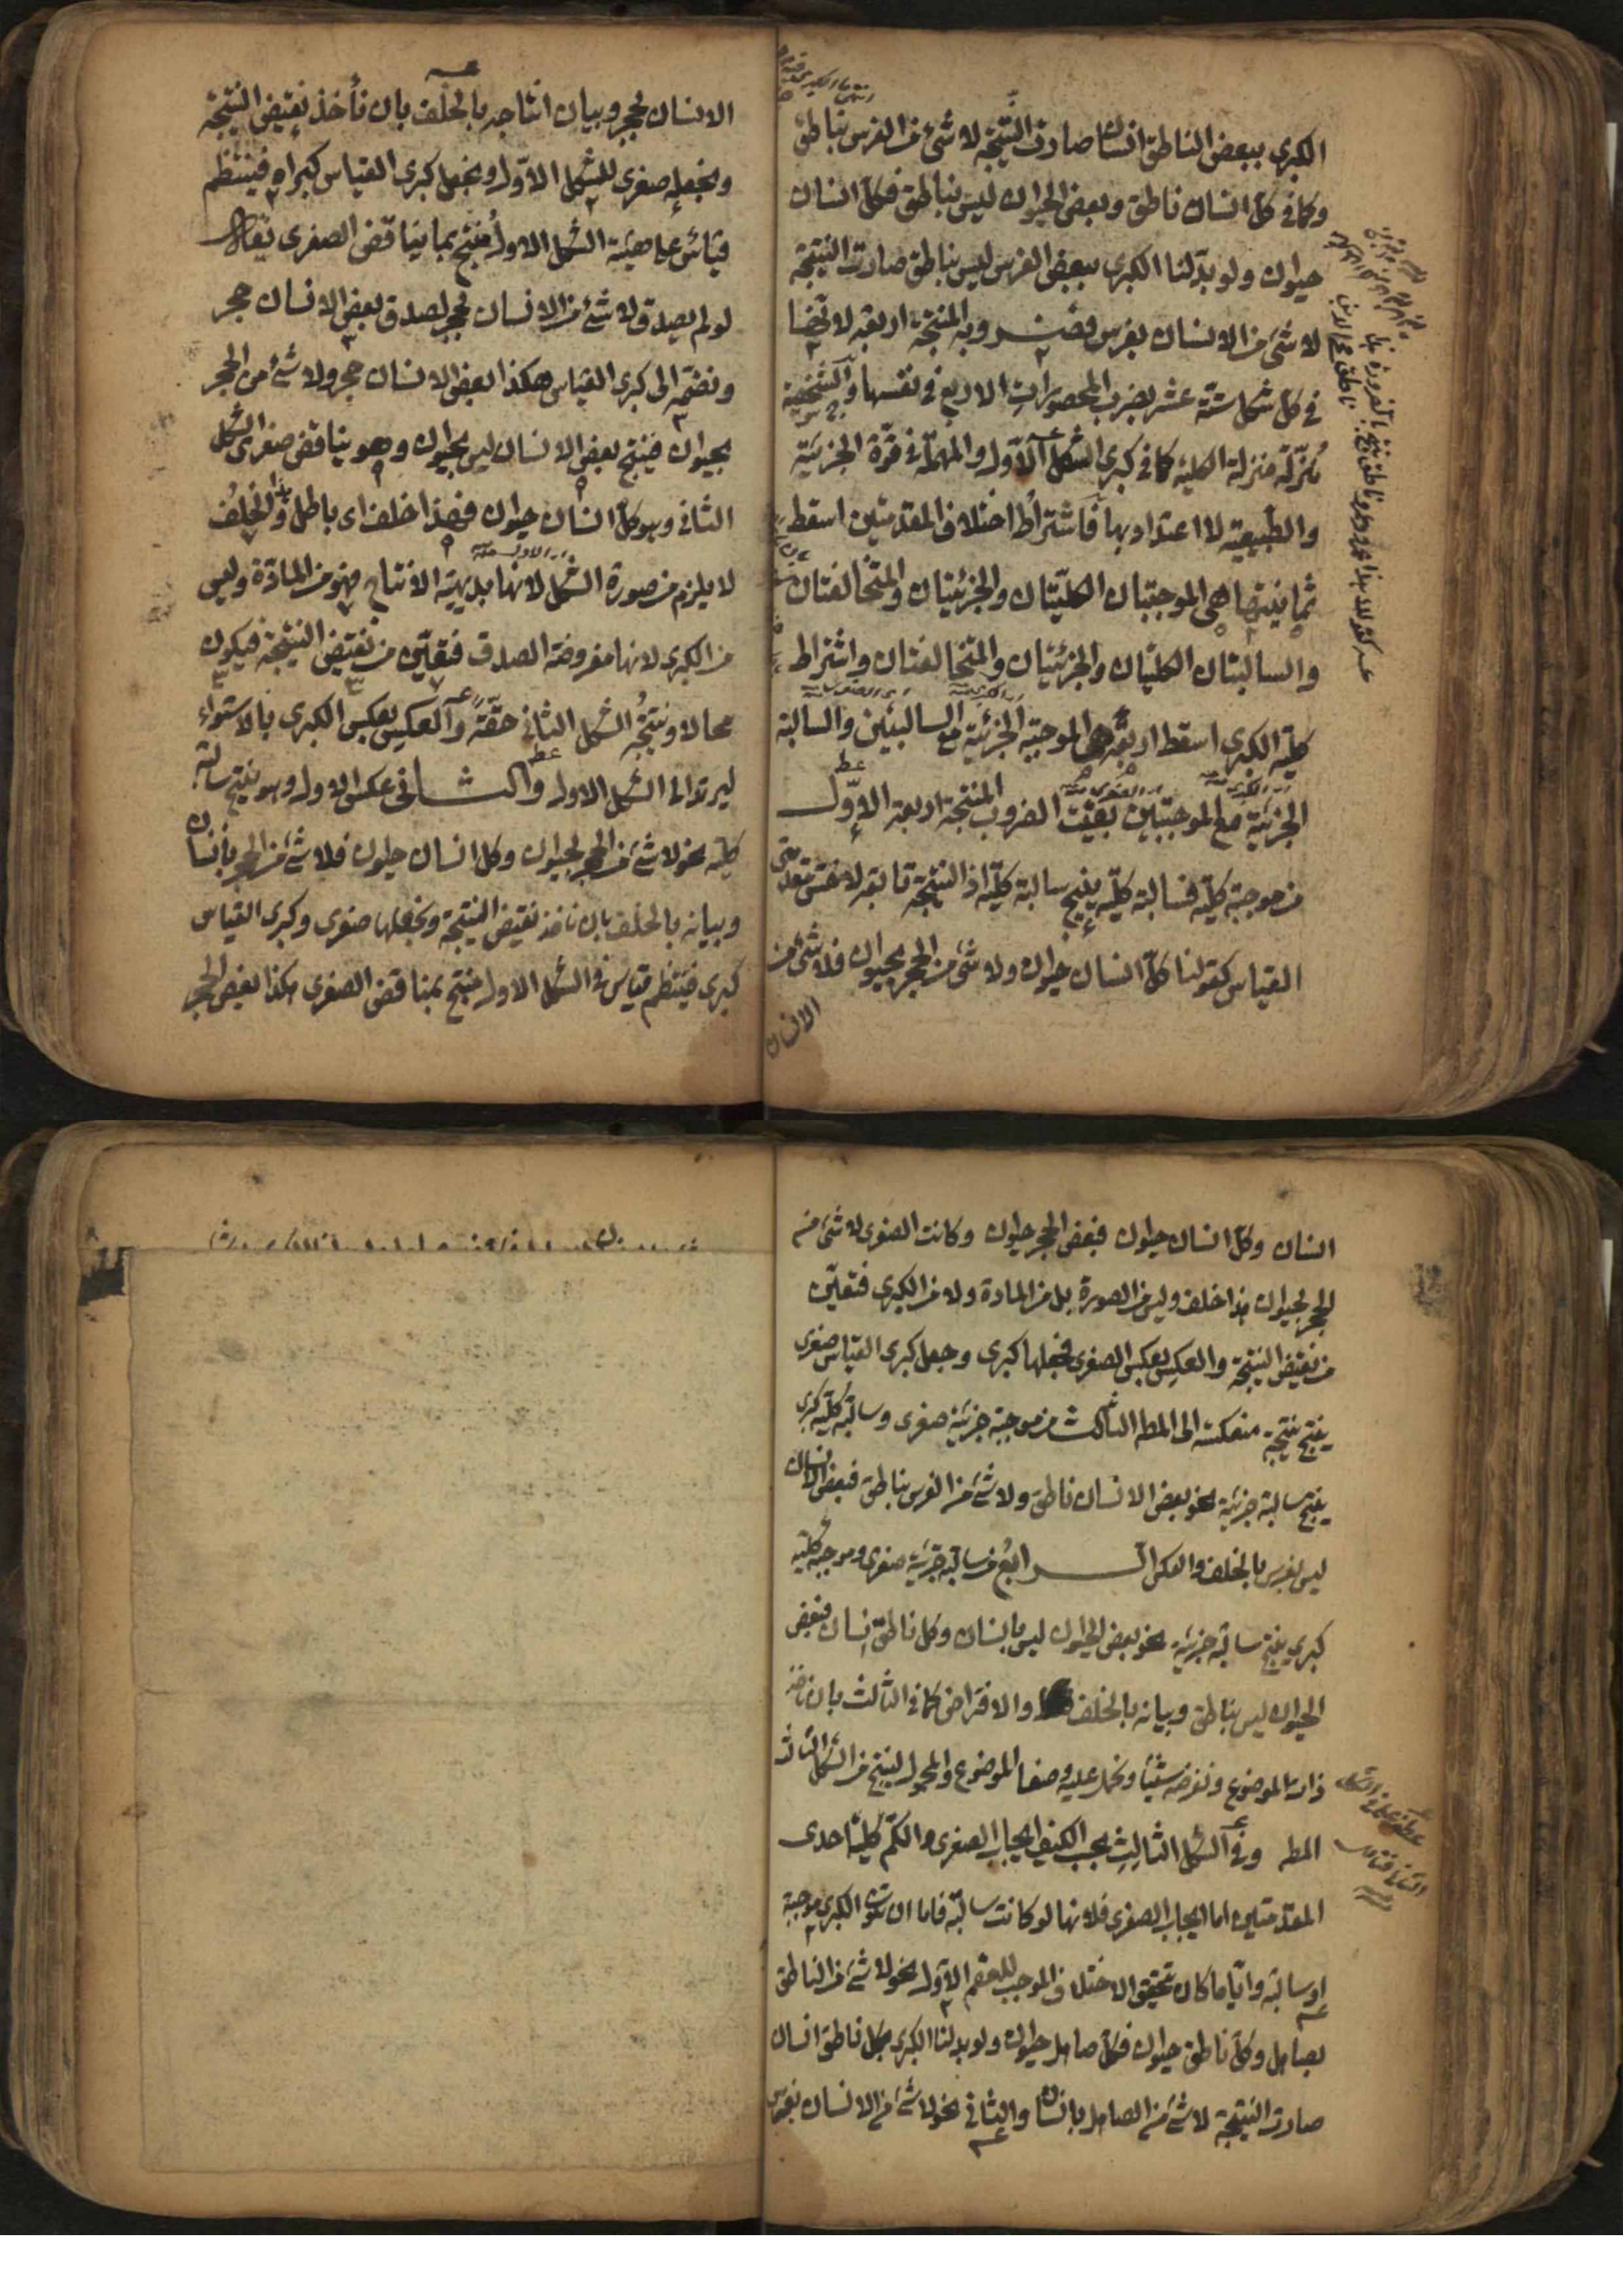 الكبرى ببعض الناطق انسان صارت النتيجة لا شئ من الفرس بناطق
وكما فى كل انسان ناطق وبعض الحيوان ليس بناطق فكل انسان
حيوان ولو بدّلنا الكبرى ببعض الفرس ليس بناطق صارت النتيجة
لا شئ من الانسان بفرس وضروبه المنتجة اربعة لا
فى كل شكل ستة عشر بضرب المحصورات الاربع فى نفسها والشخصية
مُنزّلة منزلة الكلية كما فى كبرى الشكل الاوّل والمهملة فى قوّة الجزئية
والطبيعية لا اعتداد بها فاشتراط اختلاف المقدمتين اسقط
ثمانية هى الموجبتان الكليّتان والجزئيتان والمتخالفتان
والسالبتان الكليتان والجزئيتان والمتخالفتان واشتراط
كلية الكبرى اسقط اربعة هى الموجبة الجزئية مع السالبتين والسالبة
الجزئية مع الموجبتين بقيت الضروب المنتجة اربعة الاوّل
من موجبة كلية فسالبة كلية ينتج سالبة كلية اذ النتيجة تابعة لاخس مقدمتى
القياس كقولنا كلّ انسان حيوان ولا شئ من الحجر بحيوان فلا شئ من
الانسان
الانسان بحجر وبيان انتاجه بالخلف بان نأخذ نقيض النتيجة
ونجعله صغرى للشكل الاوّل ونجعل كبرى القياس كبراه فينتظم
قياس على هيئة الشكل الاول مُنتج بما يناقض الصغرى
لو لم يصدق لا شئ من الانسان بحجر لصدق بعض الانسان حجر
ونضمه الى كبرى القياس هكذا بعض الانسان حجر ولا شئ من الحجر
بحيوان فينتج بعض الانسان ليس بحيوان وهو يناقض صغرى الشكل
الثانى وهو كل انسان حيوان فهذا خلف اى باطل والخلف
لا يلزم من صورة الشكل لانها بديهية الانتاج فهو من المادّة وليس
من الكبرى لانها مفروضة الصدق فتعيّن من نقيض النتيجة فيكون
محالا ونتيجة الشكل الثانى حقّة والعكس بعكس الكبرى بالاستواء
ليرتد الى الشكل الاول والثانى عكس الاول وهو ينتج سالبة
كلية نحو لا شئ من الحجر بحيوان وكل انسان حيوان فلا شئ من الحجر بانسان
وبيانه بالخلف بان ناخذ نقيض النتيجة ونجعلها صغرى وكبرى القياس
كبرى فينتظم قياس فى الشكل الاول منتج بمناقض الصغرى هكذا بعض الحجر
انسان وكل انسان حيوان فبعض الحجر حيوان وكانت الصغرى لا شئ من
الحجر بحيوان هذا خلف وليس من الصورة بل من المادة ولا من الكبرى فتعيّن
من نقيض النتيجة والعكس بعكس الصغرى فجعلها كبرى وجعل كبرى القياس صغرى
ينتج نتيجة منعكسة الى المط الثالث من موجبة جزئية صغرى وسالبة كلية كبرى
ينتج سالبة جزئية نحو بعض الانسان ناطق ولا شئ من الفرس بناطق فبعض الانسان
ليس بفرس بالخلف والعكس الرابع من سالبة جزئية صغرى وموجبة كلية
كبرى ينتج سالبة جزئية نحو بعض الحيوان ليس بانسان وكل ناطق انسان فبعض
الحيوان ليس بناطق وبيانه بالخلف والافتراض كما فى الثالث بان ناخذ
ذات الموضوع ونفرضه شيئا ونحمل عليه وصفا الموضوع والمحمول لينتج من الشكل الثالث
المط وفى الشكل الثالث بحسب الكيف ايجاب الصغرى والكم كلية احدى
المقدمتين اما ايجاب الصغرى فلانها لو كانت سالبة فاما ان تكون الكبرى موجبة
او سالبة وايّاما كان تحقق الاختلاف الموجب للعقم الاوّل نحو لا شئ من الناطق
بصاهل وكل ناطق حيوان فكل صاهل حيوان ولو بدلنا الكبرى بكل ناطق انسان
صارت النتيجة لا شئ من الصاهل بانسان والثانى نحو لا شئ من الانسان بفرس